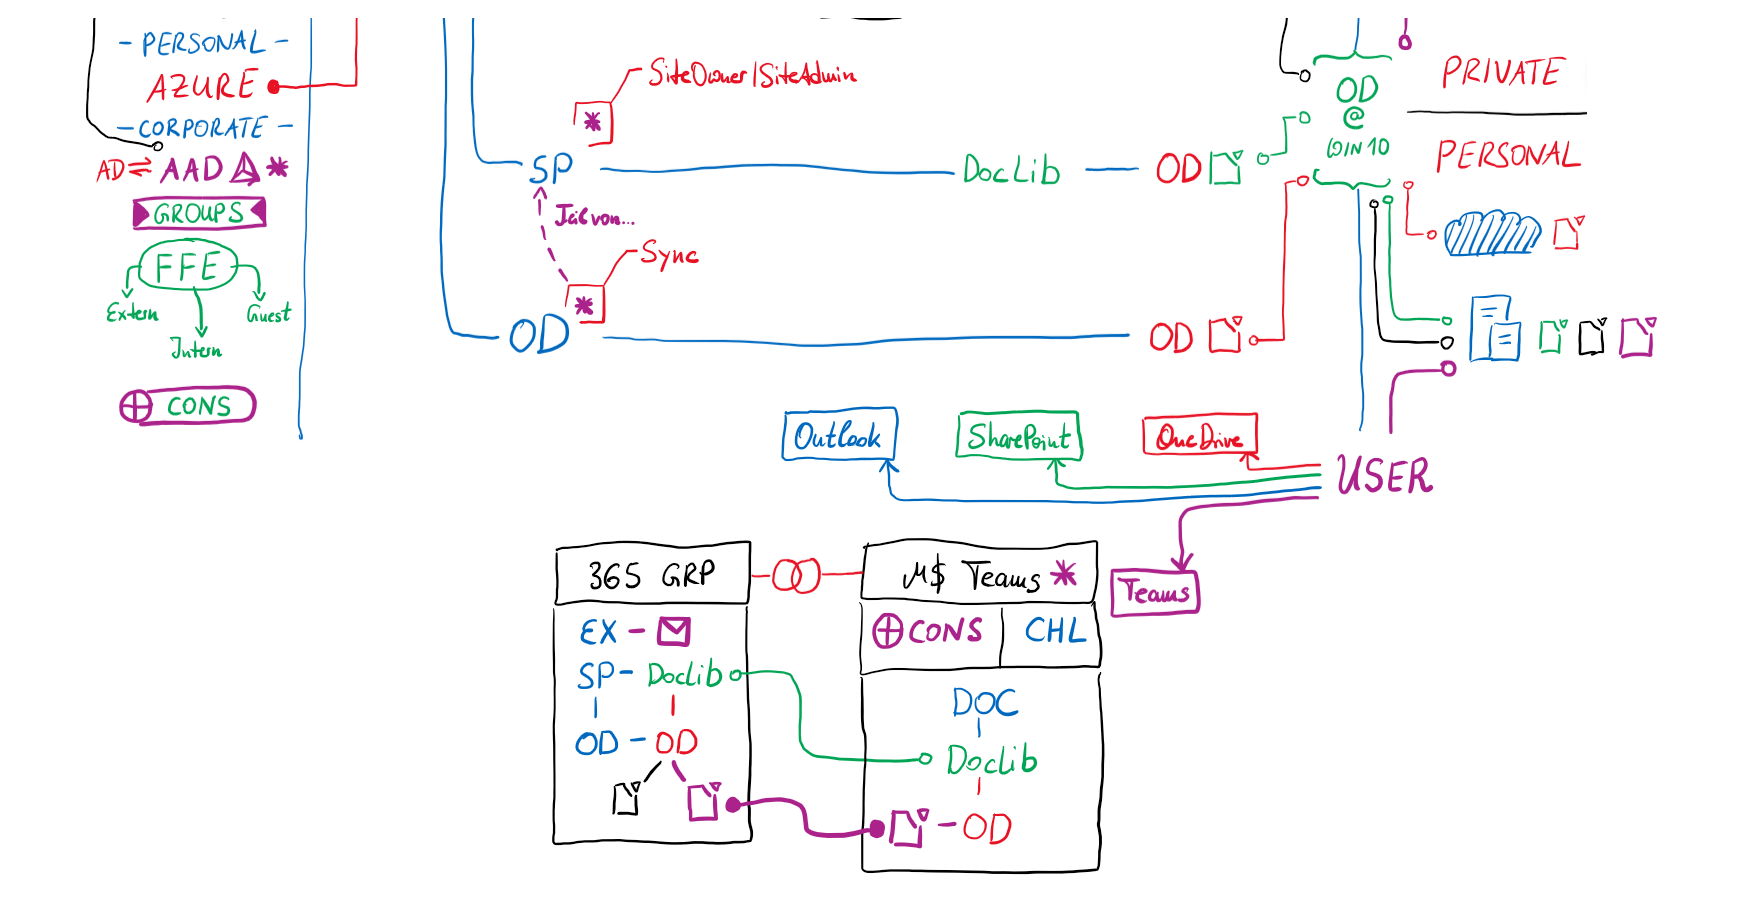 - PERSONAL -
AZURE
- CORPORATE -
AD ⇌ AAD *
GROUPS
FFE
Extern
Guest
Intern
⊕ CONS
SiteOwner/SiteAdmin
*
SP
DocLib
OD
Teil von...
Sync
*
OD
OD
OD
@
WIN 10
PRIVATE
PERSONAL
Outlook
SharePoint
OneDrive
USER
Teams
365 GRP
EX -
SP - Doclib
OD - OD
M$ Teams *
⊕ CONS
CHL
DOC
Doclib
- OD